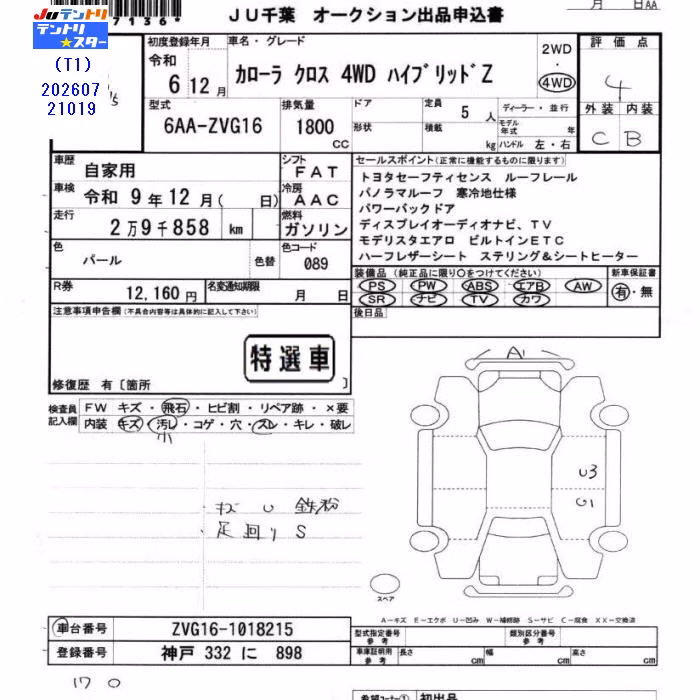 7136*
JU千葉 オークション出品申込書
月 日AA
JUテントリ
テントリ★スター
(T1)
202607
21019
初度登録年月
令和
6 12月
車名・グレード
カローラ クロス 4WD ハイブリッドZ
2WD
・
4WD
評価点
4
外装 内装
C B
型式
6AA-ZVG16
排気量
1800 CC
ドア
形状
定員
5 人
積載 kg
ディーラー・並行
モデル年式 年
ハンドル 左・右
車歴
自家用
シフト
FAT
車検
令和 9年12月( 日)
冷房
AAC
走行
2万9千858 km
燃料
ガソリン
色
パール
色替
色コード
089
R券
12,160円
名変通知期限
月 日
セールスポイント(正常に機能するものに限ります)
トヨタセーフティセンス ルーフレール
パノラマルーフ 寒冷地仕様
パワーバックドア
ディスプレイオーディオナビ、TV
モデリスタエアロ ビルトインETC
ハーフレザーシート ステリング&シートヒーター
装備品(純正品に限り○をつけてください)
PS PW ABS エアB AW
SR ナビ TV カワ
新車保証書
有・無
後日品
注意事項申告欄(不具合内容等は具体的に記入して下さい)
特選車
修復歴 有〔箇所 〕
検査員
記入欄
FW キズ・飛石・ヒビ割・リペア跡・×要
内装 キズ・汚レ・コゲ・穴・スレ・キレ・破レ
小
・キズ U 鉄粉
・足回り S
A
U3
G1
スペア
A－キズ E－エクボ U－凹み W－補修跡 S－サビ C－腐食 XX－交換済
車台番号
ZVG16-1018215
登録番号
神戸 332 に 898
型式指定番号
参考
類別区分番号
参考
車庫証明用
参考
長さ cm
幅 cm
高さ cm
17 0
希望コーナー①
初出品